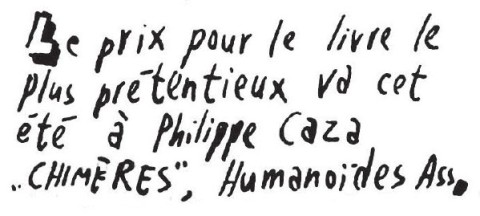 Le prix pour le livre le
plus prétentieux va cet
été à Philippe Caza
„CHIMÈRES", Humanoïdes Ass.